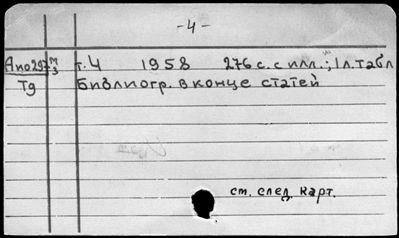 -4-
Апо297 м/3 т.4 1958 276 с. с илл.; 1 л. табл
Тд Библиогр. в конце статей
см. след. карт.